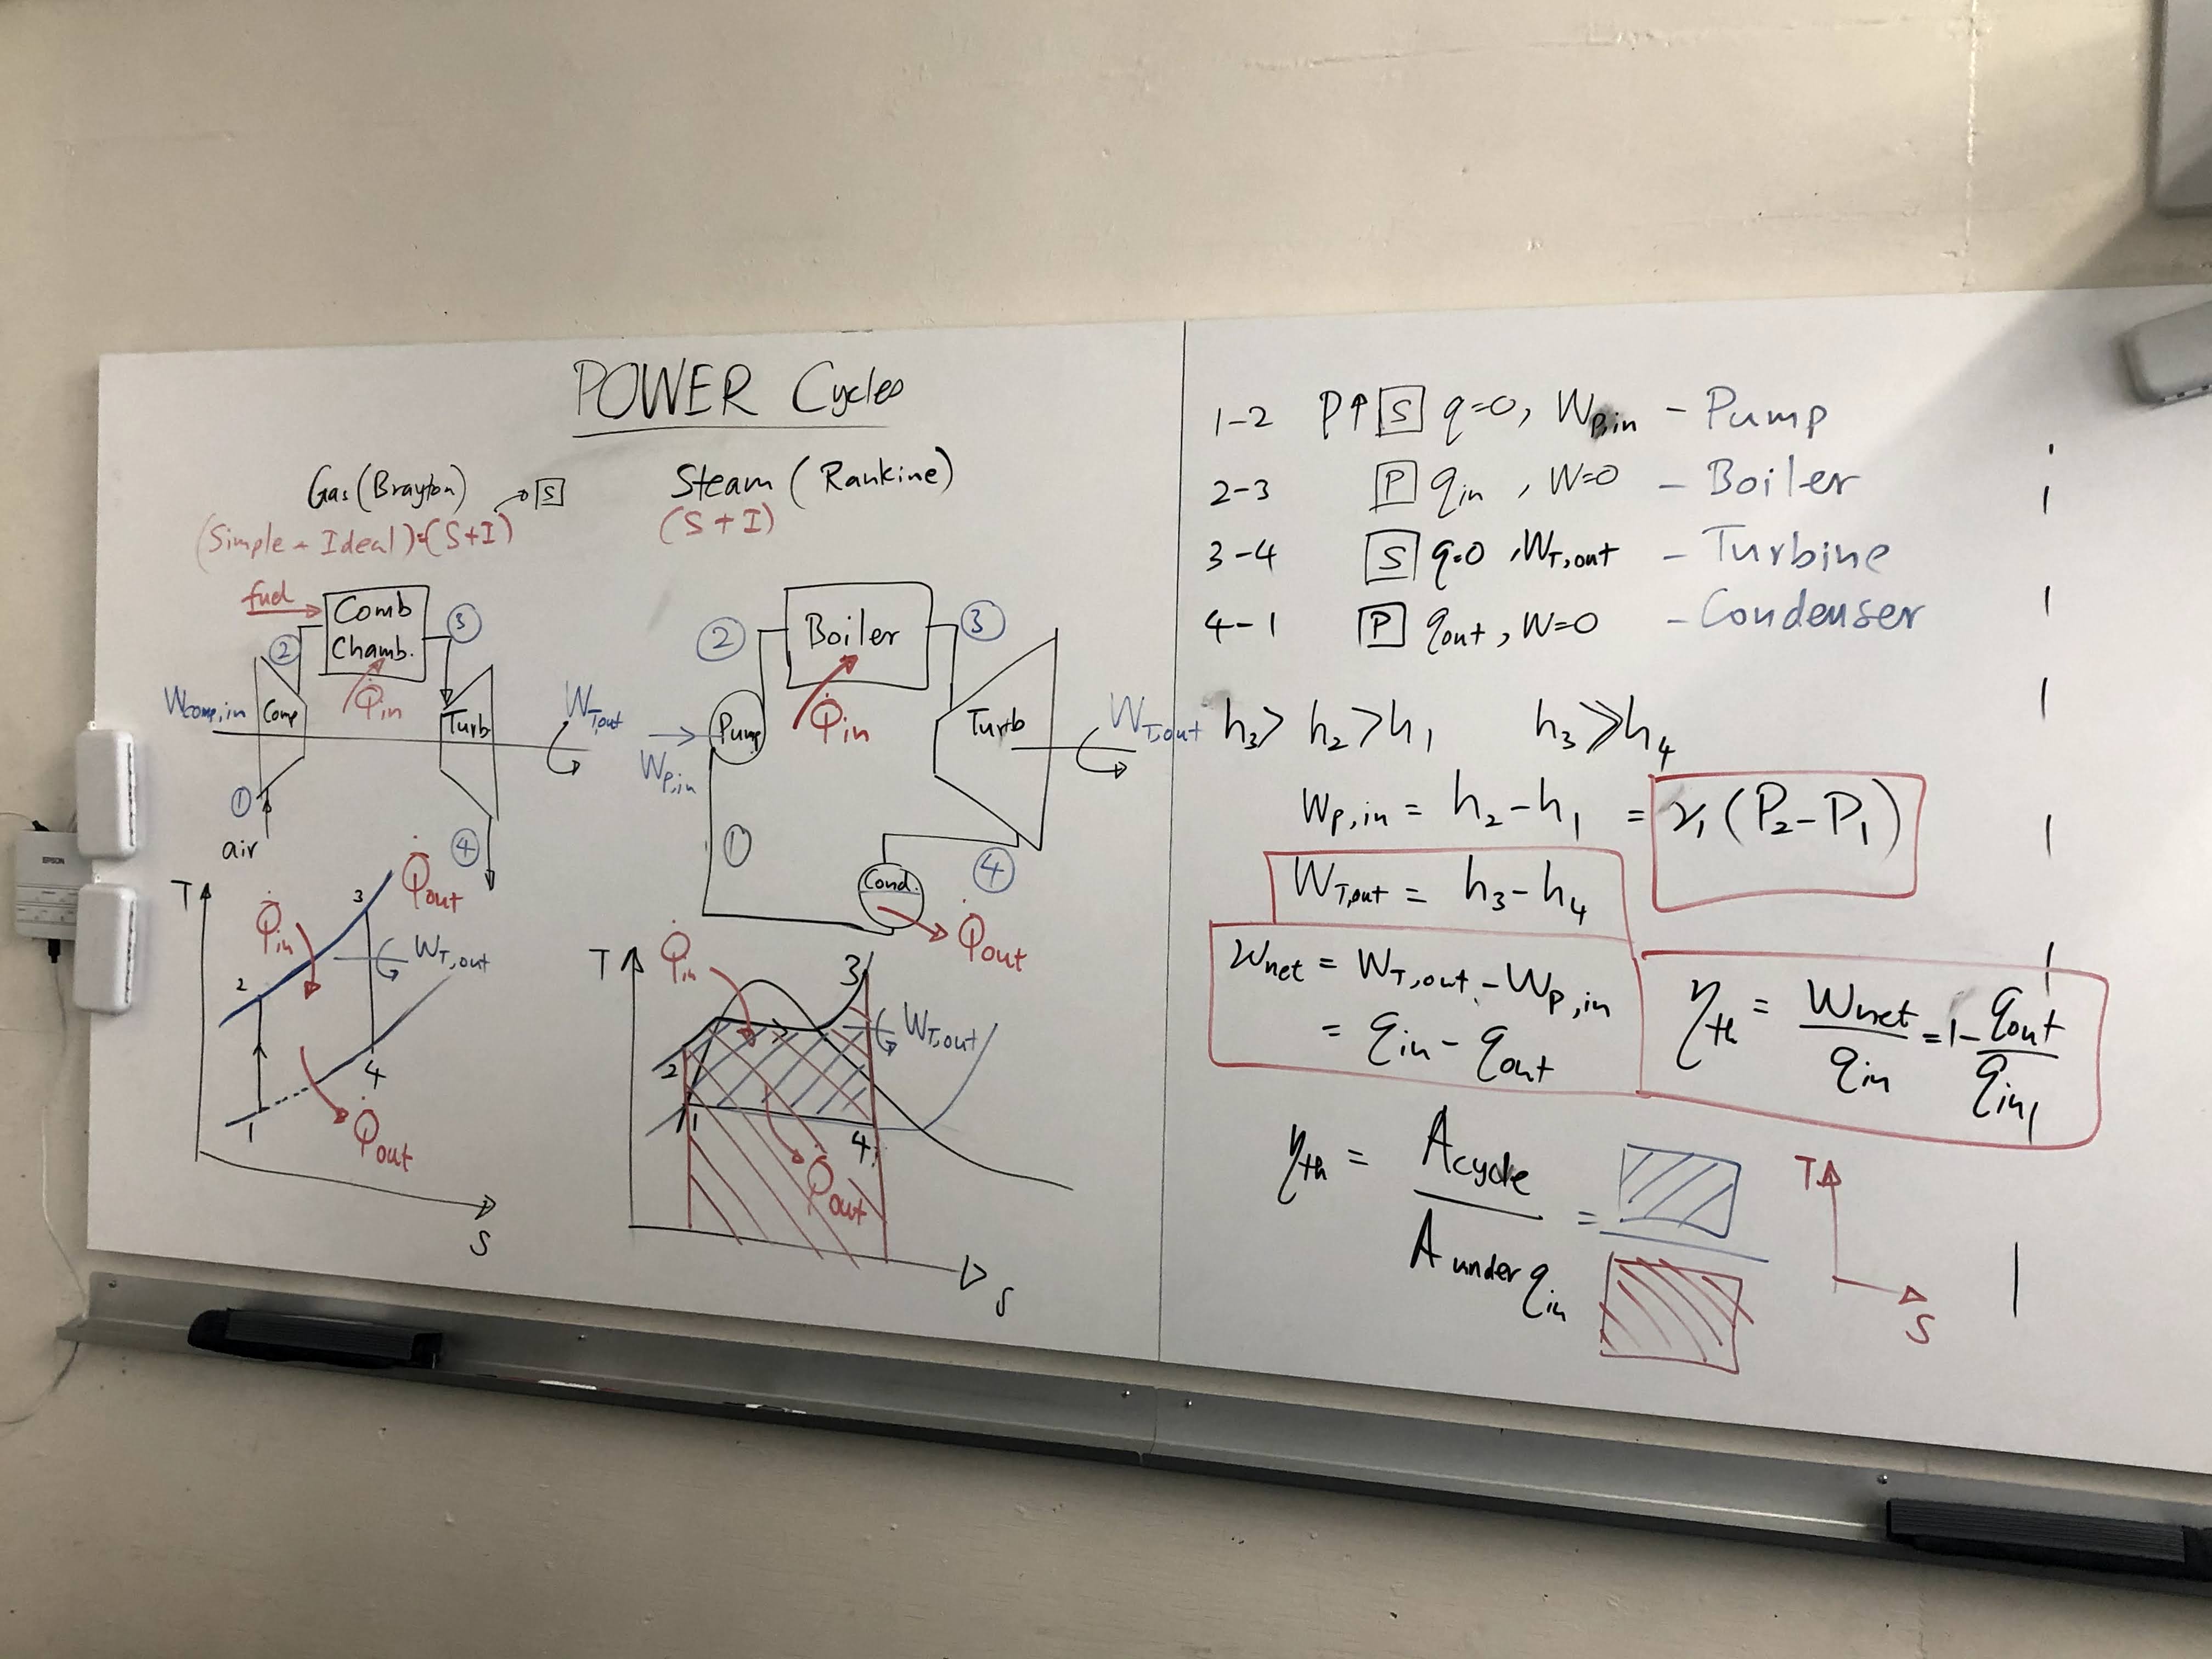 POWER Cycles
Gas (Brayton) → [S]
(Simple + Ideal) = (S+I)
fuel
Comb
Chamb.
Q̇in
②
③
Ẇcomp,in
Comp
Turb
ẆT,out
①
air
④
T
Q̇in
Q̇out
3
2
WT,out
4
1
Q̇out
S
Steam (Rankine)
(S+I)
②
Boiler
③
Q̇in
Pump
WP,in
Turb
ẆT,out
①
④
Cond.
Q̇out
T
Q̇in
3
WT,out
2
1
4
Q̇out
S
1-2 P↑ [S] q=0, WP,in - Pump
2-3 [P] qin, W=0 - Boiler
3-4 [S] q=0, WT,out - Turbine
4-1 [P] qout, W=0 - Condenser
h3 > h2 > h1 h3 ≫ h4
WP,in = h2-h1 = ν1(P2-P1)
WT,out = h3-h4
Wnet = WT,out - WP,in
= qin - qout
ηth = Wnet/qin = 1- qout/qin
ηth = Acycle / A under qin =
T
S
EPSON